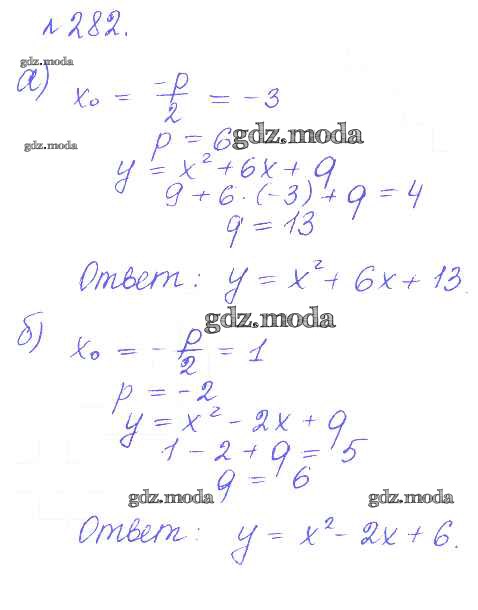 № 282.
gdz.moda
а) x₀ = -p/2 = -3
gdz.moda
p = 6 gdz.moda
y = x² + 6x + q
9 + 6 · (-3) + q = 4
q = 13
Ответ: y = x² + 6x + 13.
gdz.moda
б) x₀ = - p/2 = 1
p = -2
y = x² - 2x + q
1 - 2 + q = 5
q = 6
gdz.moda gdz.moda
Ответ: y = x² - 2x + 6.